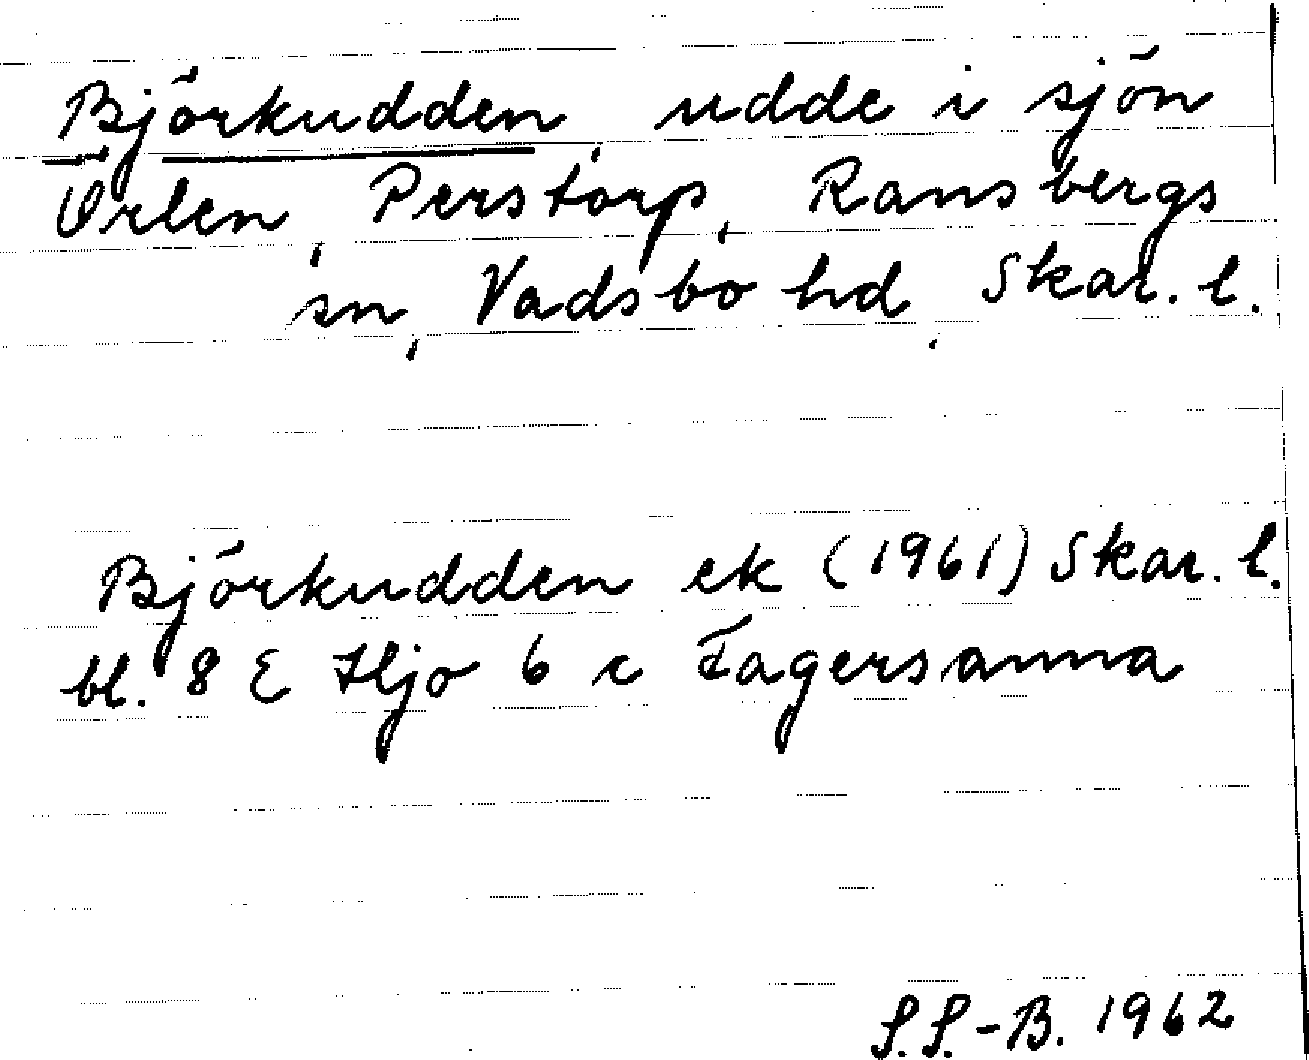 Björkudden udde i sjön
Örlen, Perstorp, Ransbergs
sn, Vadsbo hd, Skar. l.
Björkudden ek (1961) Skar. l.
bl. 8 E Hjo 6 c Fagersanna
S.S.-B. 1962